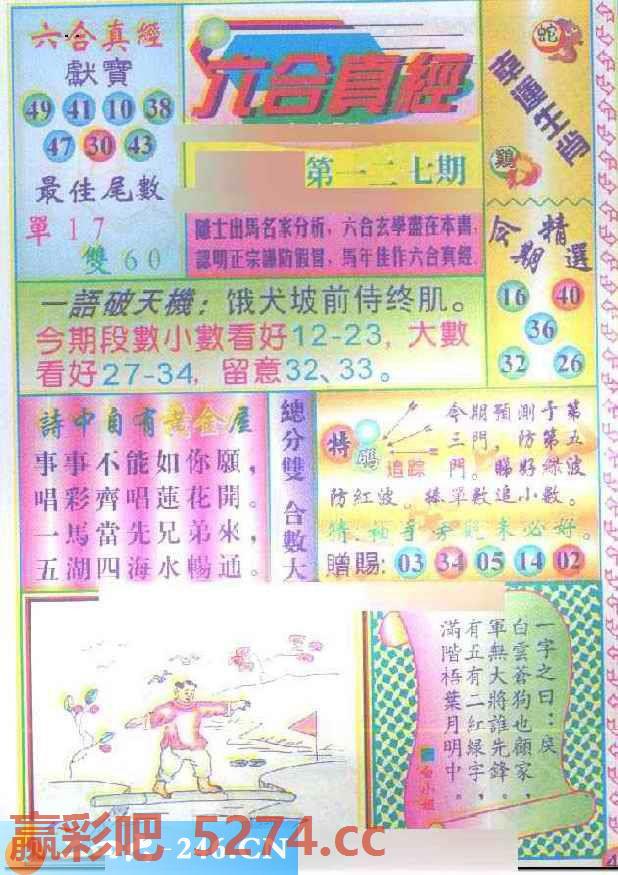 六合真經
獻寶
49 41 10 38
47 30 43
最佳尾數
單17
雙60
六合真經
第一二七期
隱士出馬名家分析，六合玄學盡在本書，
認明正宗謹防假冒，馬年佳作六合真經.
幸運生肖
蛇
鷄
今期精選
16 40
36
32 26
一語破天機：饿犬坡前侍终肌。
今期段數小數看好12-23，大數
看好27-34，留意32、33。
詩中自有黃金屋
事事不能如你願，
唱彩齊唱蓮花開。
一馬當先兄弟來，
五湖四海水暢通。
總分雙 合數大
特碼
追踪
今期預測于第
三門，防第五
門。睇好綠波
防紅波。捧單數追小數。
猜：袖手旁觀未必好。
贈賜：03 34 05 14 02
一字之曰：戾
白雲蒼狗也顧家，
軍無大將誰先鋒，
有五有二紅綠字，
滿階梧葉月明中。
赢彩吧 5274.cc
246.CN